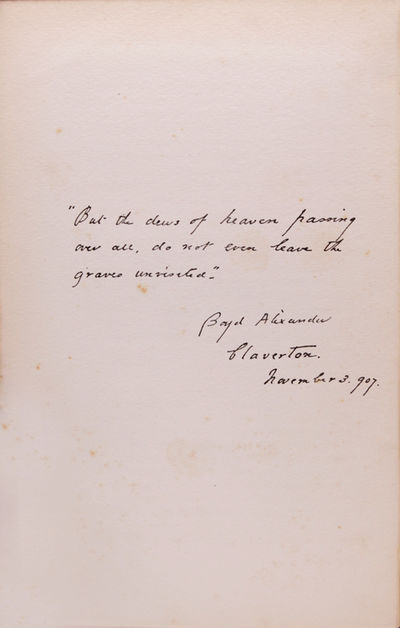 "But the dews of heaven passing
over all, do not even leave the
graves unvisited."
Boyd Alexander
Claverton.
November 3. 907.